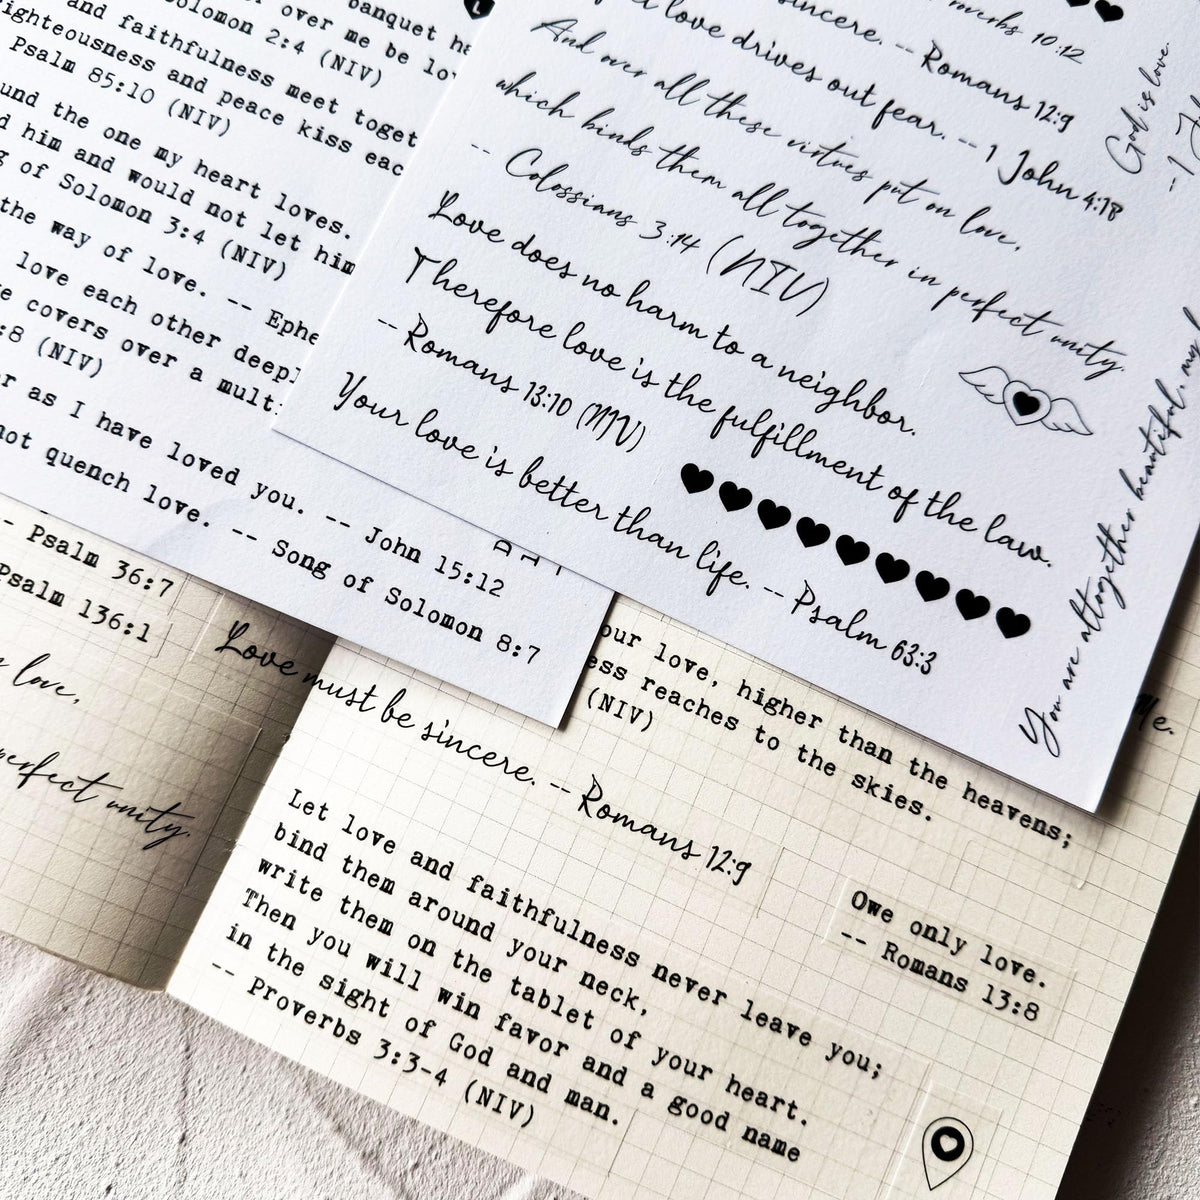 banquet
over me be
Solomon 2:4 (NIV)
and faithfulness meet
righteousness and peace kiss
Psalm 85:10 (NIV)
the one my heart loves.
him and would not let him
of Solomon 3:4 (NIV)
the way of love. --
love each other
covers over a
:8 (NIV)
as I have loved you. -- John 15:12
not quench love. -- Song of Solomon 8:7
10:12
sincere. -- Romans 12:9
love drives out fear. -- 1 John 4:18
And over all these virtues put on love,
which binds them all together in perfect unity.
-- Colossians 3:14 (NIV)
Love does no harm to a neighbor.
Therefore love is the fulfillment of the law.
-- Romans 13:10 (NIV)
Your love is better than life. -- Psalm 63:3
God is love.
You are altogether beautiful, my
-- Psalm 36:7
Psalm 136:1
love,
perfect unity.
Love must be sincere. -- Romans 12:9
love, higher than the heavens;
reaches to the skies.
(NIV)
Me.
Let love and faithfulness never leave you;
bind them around your neck,
write them on the tablet of your heart.
Then you will win favor and a good name
in the sight of God and man.
-- Proverbs 3:3-4 (NIV)
Owe only love.
-- Romans 13:8